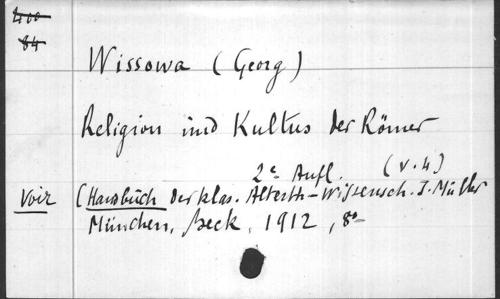 400
84
Wissowa (Georg)
Religion und Kultus der Römer
2e Aufl. (v.4)
Voir (Handbuch der klas. Alterth-Wissensch. I. Müller
München, Beck, 1912, 8o